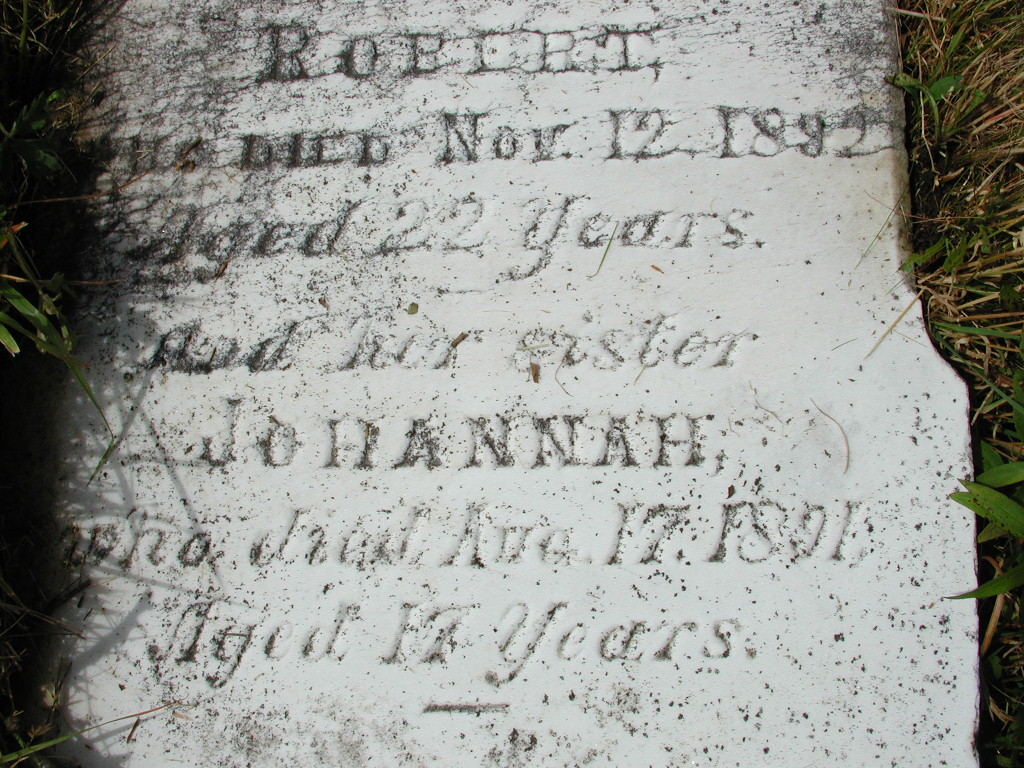 ROBERT,
who DIED Nov. 12, 1892
Aged 22 Years.
and his sister
JOHANNAH,
who died Aug. 17. 1891.
Aged 17 Years.